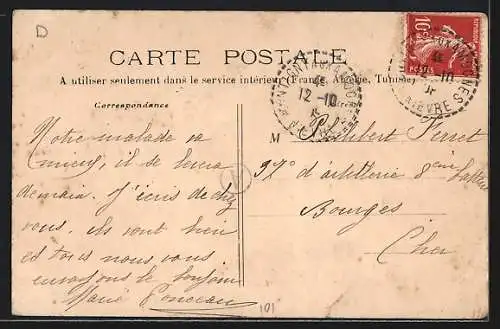 D
CARTE POSTALE
A utiliser seulement dans le service intérieur (France, Algérie, Tunisie)
Correspondance
Notre malade va
mieux, il se lèvera
demain. J'écris de chez
vous. ils sont bien
et tous nous vous
envoyons le bonjour
Marie
M Philibert Perret
37e d'artillerie 8eme
Bourges
Cher
10c
POSTES
12-10
NIEVRE
101